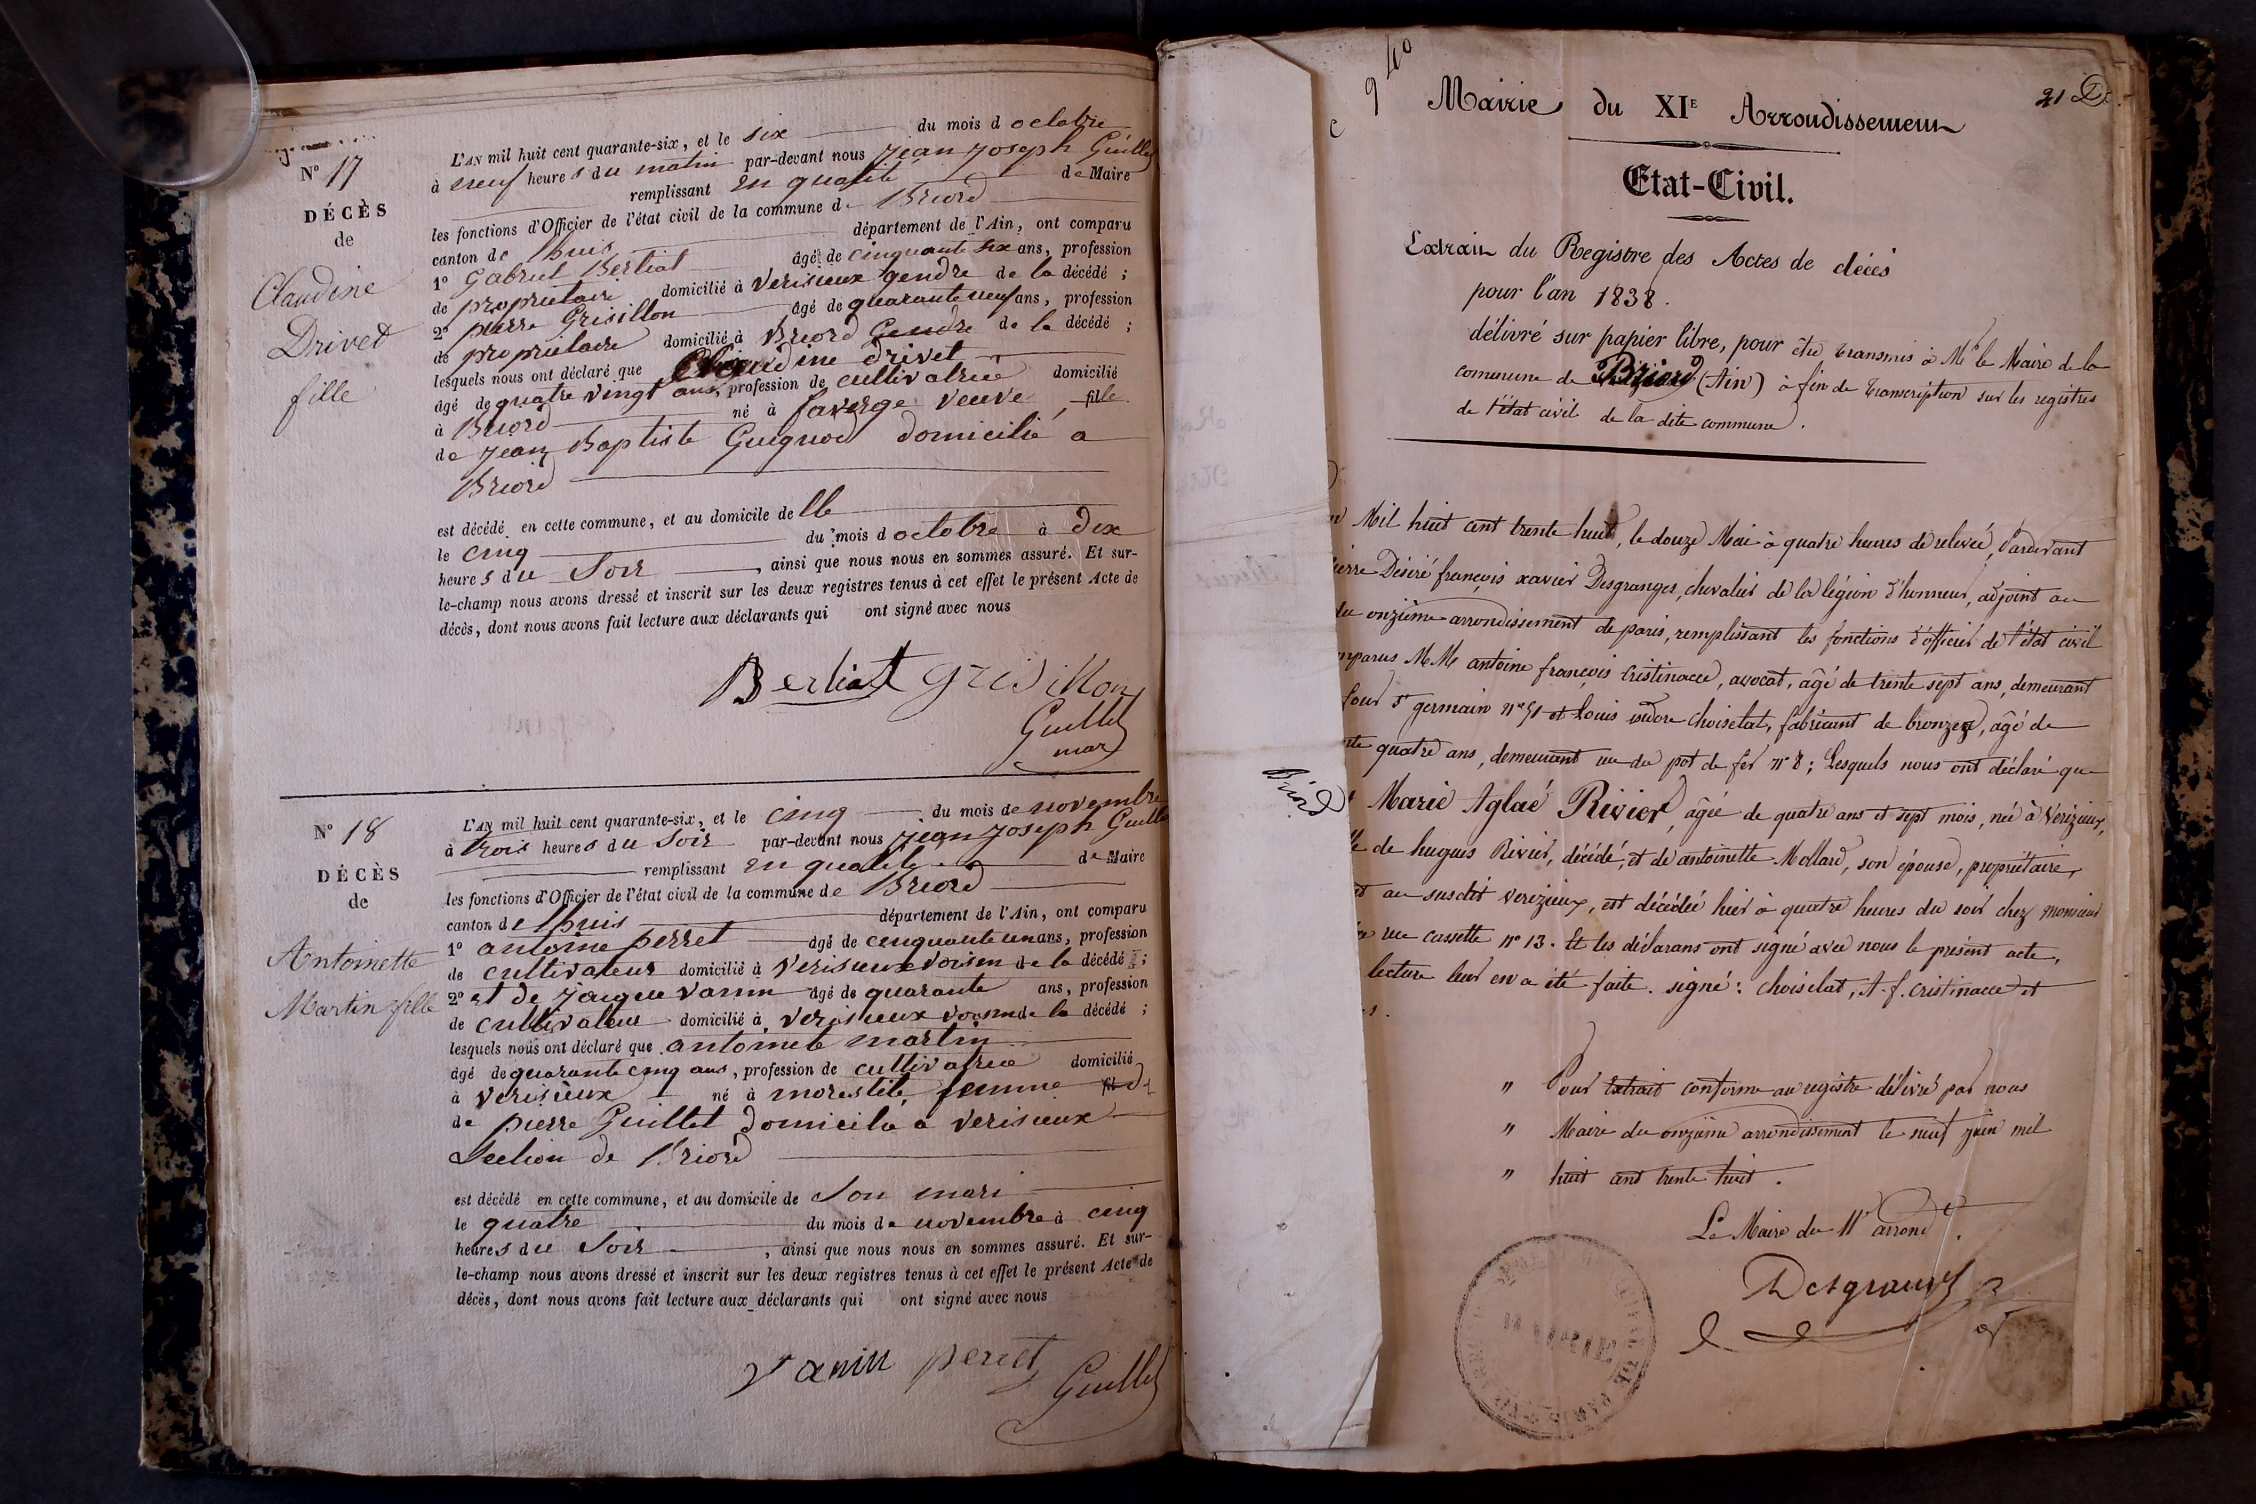 N° 17
DÉCÈS
de
Claudine
Drivet
fille
L'AN mil huit cent quarante-six, et le six du mois d octobre
à neuf heures du matin par-devant nous Jean Joseph Guillet
remplissant en qualité de Maire
les fonctions d'Officier de l'état civil de la commune de Briord
canton de lhuis département de l'Ain, ont comparu
1° Gabriel Berliat âgé de cinquante six ans, profession
de propriétaire domicilié à Verisieux gendre de la décédé ;
2° pierre Grisillon âgé de quarante neuf ans, profession
de propriétaire domicilié à Briord Gendre de la décédé ;
lesquels nous ont déclaré que Claudine drivet
âgé de quatre vingt ans, profession de cultivatrice domicilié
à Briord né à faverge veuve fille
de Jean Baptiste Guignod domicilié a
Briord
est décédé en cette commune, et au domicile de
le cinq du mois d octobre à dix
heures du Soir , ainsi que nous nous en sommes assuré. Et sur-
le-champ nous avons dressé et inscrit sur les deux registres tenus à cet effet le présent Acte de
décès, dont nous avons fait lecture aux déclarants qui ont signé avec nous
Berliat grisillon
Guillet
N° 18
DÉCÈS
de
Antoinette
Martin fille
L'AN mil huit cent quarante-six, et le cinq du mois de novembre
à trois heures du Soir par-devant nous Jean Joseph Guillet
remplissant en qualité de Maire
les fonctions d'Officier de l'état civil de la commune de Briord
canton de lhuis département de l'Ain, ont comparu
1° antoine perret âgé de cinquante un ans, profession
de cultivateur domicilié à Verisieux voisin de la décédé ;
2° et de Jacque vanin âgé de quarante ans, profession
de cultivateur domicilié à verisieux voisin de la décédé ;
lesquels nous ont déclaré que antoinete martin
âgé de quarante cinq ans, profession de cultivatrice domicilié
à verisieux né à morestile femme
de pierre Guillet domicilié a verisieux
Section de Briord
est décédé en cette commune, et au domicile de Son mari
le quatre du mois de novembre à cinq
heures du Soir , ainsi que nous nous en sommes assuré. Et sur-
le-champ nous avons dressé et inscrit sur les deux registres tenus à cet effet le présent Acte de
décès, dont nous avons fait lecture aux déclarants qui ont signé avec nous
vanin perret
Guillet
Briord
Mairie du XIE Arrondissement
Etat-Civil.
Extrait du Registre des Actes de décès
pour l'an 1838.
délivré sur papier libre, pour être transmis à Mr le Maire de la
commune de Briord (Ain) à fin de transcription sur les registres
de l'état civil de la dite commune.
Mil huit cent trente huit, le douze Mai à quatre heures de relevée, Pardevant
ierre Désiré françois xavier Desgranges, chevalier de la légion d'honneur, adjoint au
du onzième arrondissement de paris, remplissant les fonctions d'officier de l'état civil
mparus MM antoine françois Cristinacce, avocat, âgé de trente sept ans, demeurant
four St germain n° 51 et Louis isidore Choiselat, fabricant de bronzes, âgé de
nte quatre ans, demeurant rue du pot de fer n° 8 ; Lesquels nous ont déclaré que
Marie Aglaé Rivier, âgée de quatre ans et sept mois, née à Verizieux,
lle de hugues Rivier, décédé, et de antoinette Mollard, son épouse, propriétaire
au susdit verizieux, est décédée hier à quatre heures du soir chez monsieur
rue cassette n° 13. Et les déclarans ont signé avec nous le présent acte,
lecture leur en a été faite. signé : choiselat, A. f. cristinacce et
s.
" Pour Extrait conforme au registre délivré par nous
" Maire du onzième arrondissement le neuf juin mil
" huit cent trente huit.
Le Maire du 11e arrondt.
Desgranges